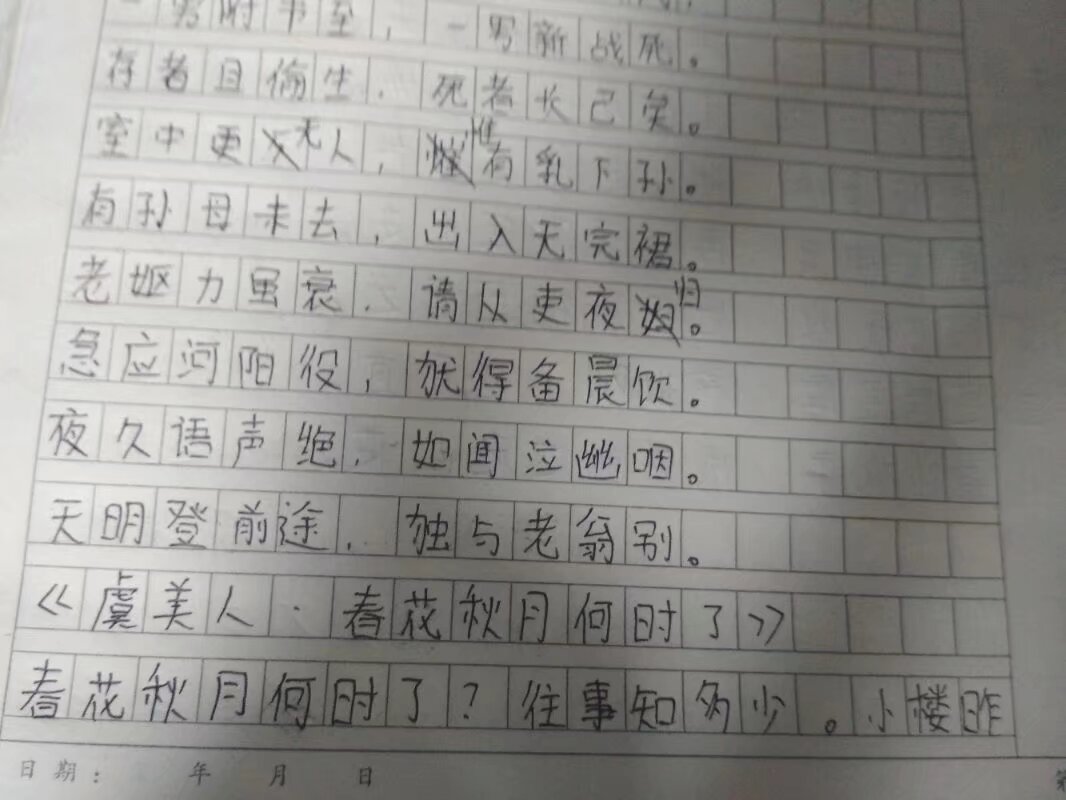 一男附书至，一男新战死。
存者且偷生，死者长已矣。
室中更无人，惟有乳下孙。
有孙母未去，出入无完裙。
老妪力虽衰，请从吏夜归。
急应河阳役，犹得备晨饮。
夜久语声绝，如闻泣幽咽。
天明登前途，独与老翁别。
《虞美人·春花秋月何时了》
春花秋月何时了？往事知多少。小楼昨
日期： 年 月 日